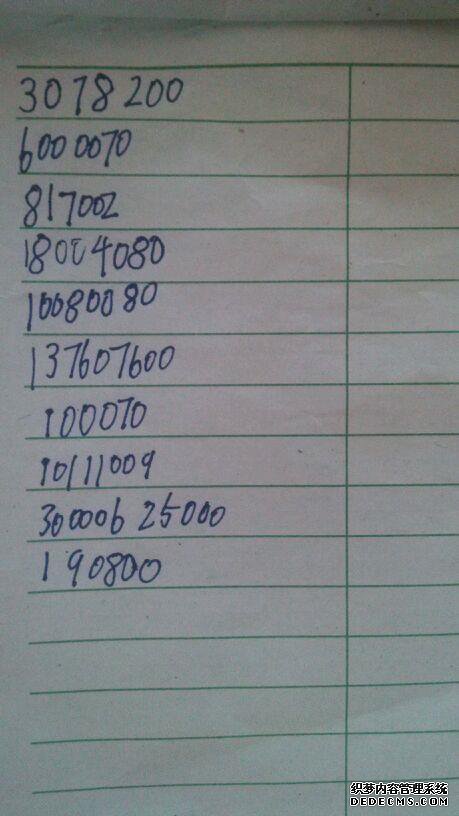 3078200
6000070
817002
18004080
10080080
137607600
100070
10111009
30000625000
190800
织梦内容管理系统
DEDECMS.COM